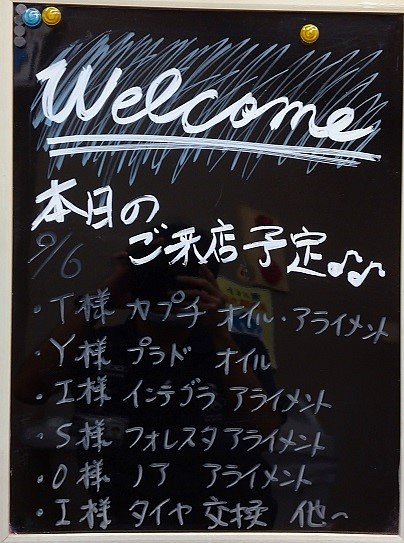 Welcome
本日の
9/6 ご来店予定♪♪
・T様 カプチ オイル・アライメント
・Y様 プラド オイル
・I様 インテグラ アライメント
・S様 フォレスタ アライメント
・O様 ノア アライメント
・I様 タイヤ交換 他〜